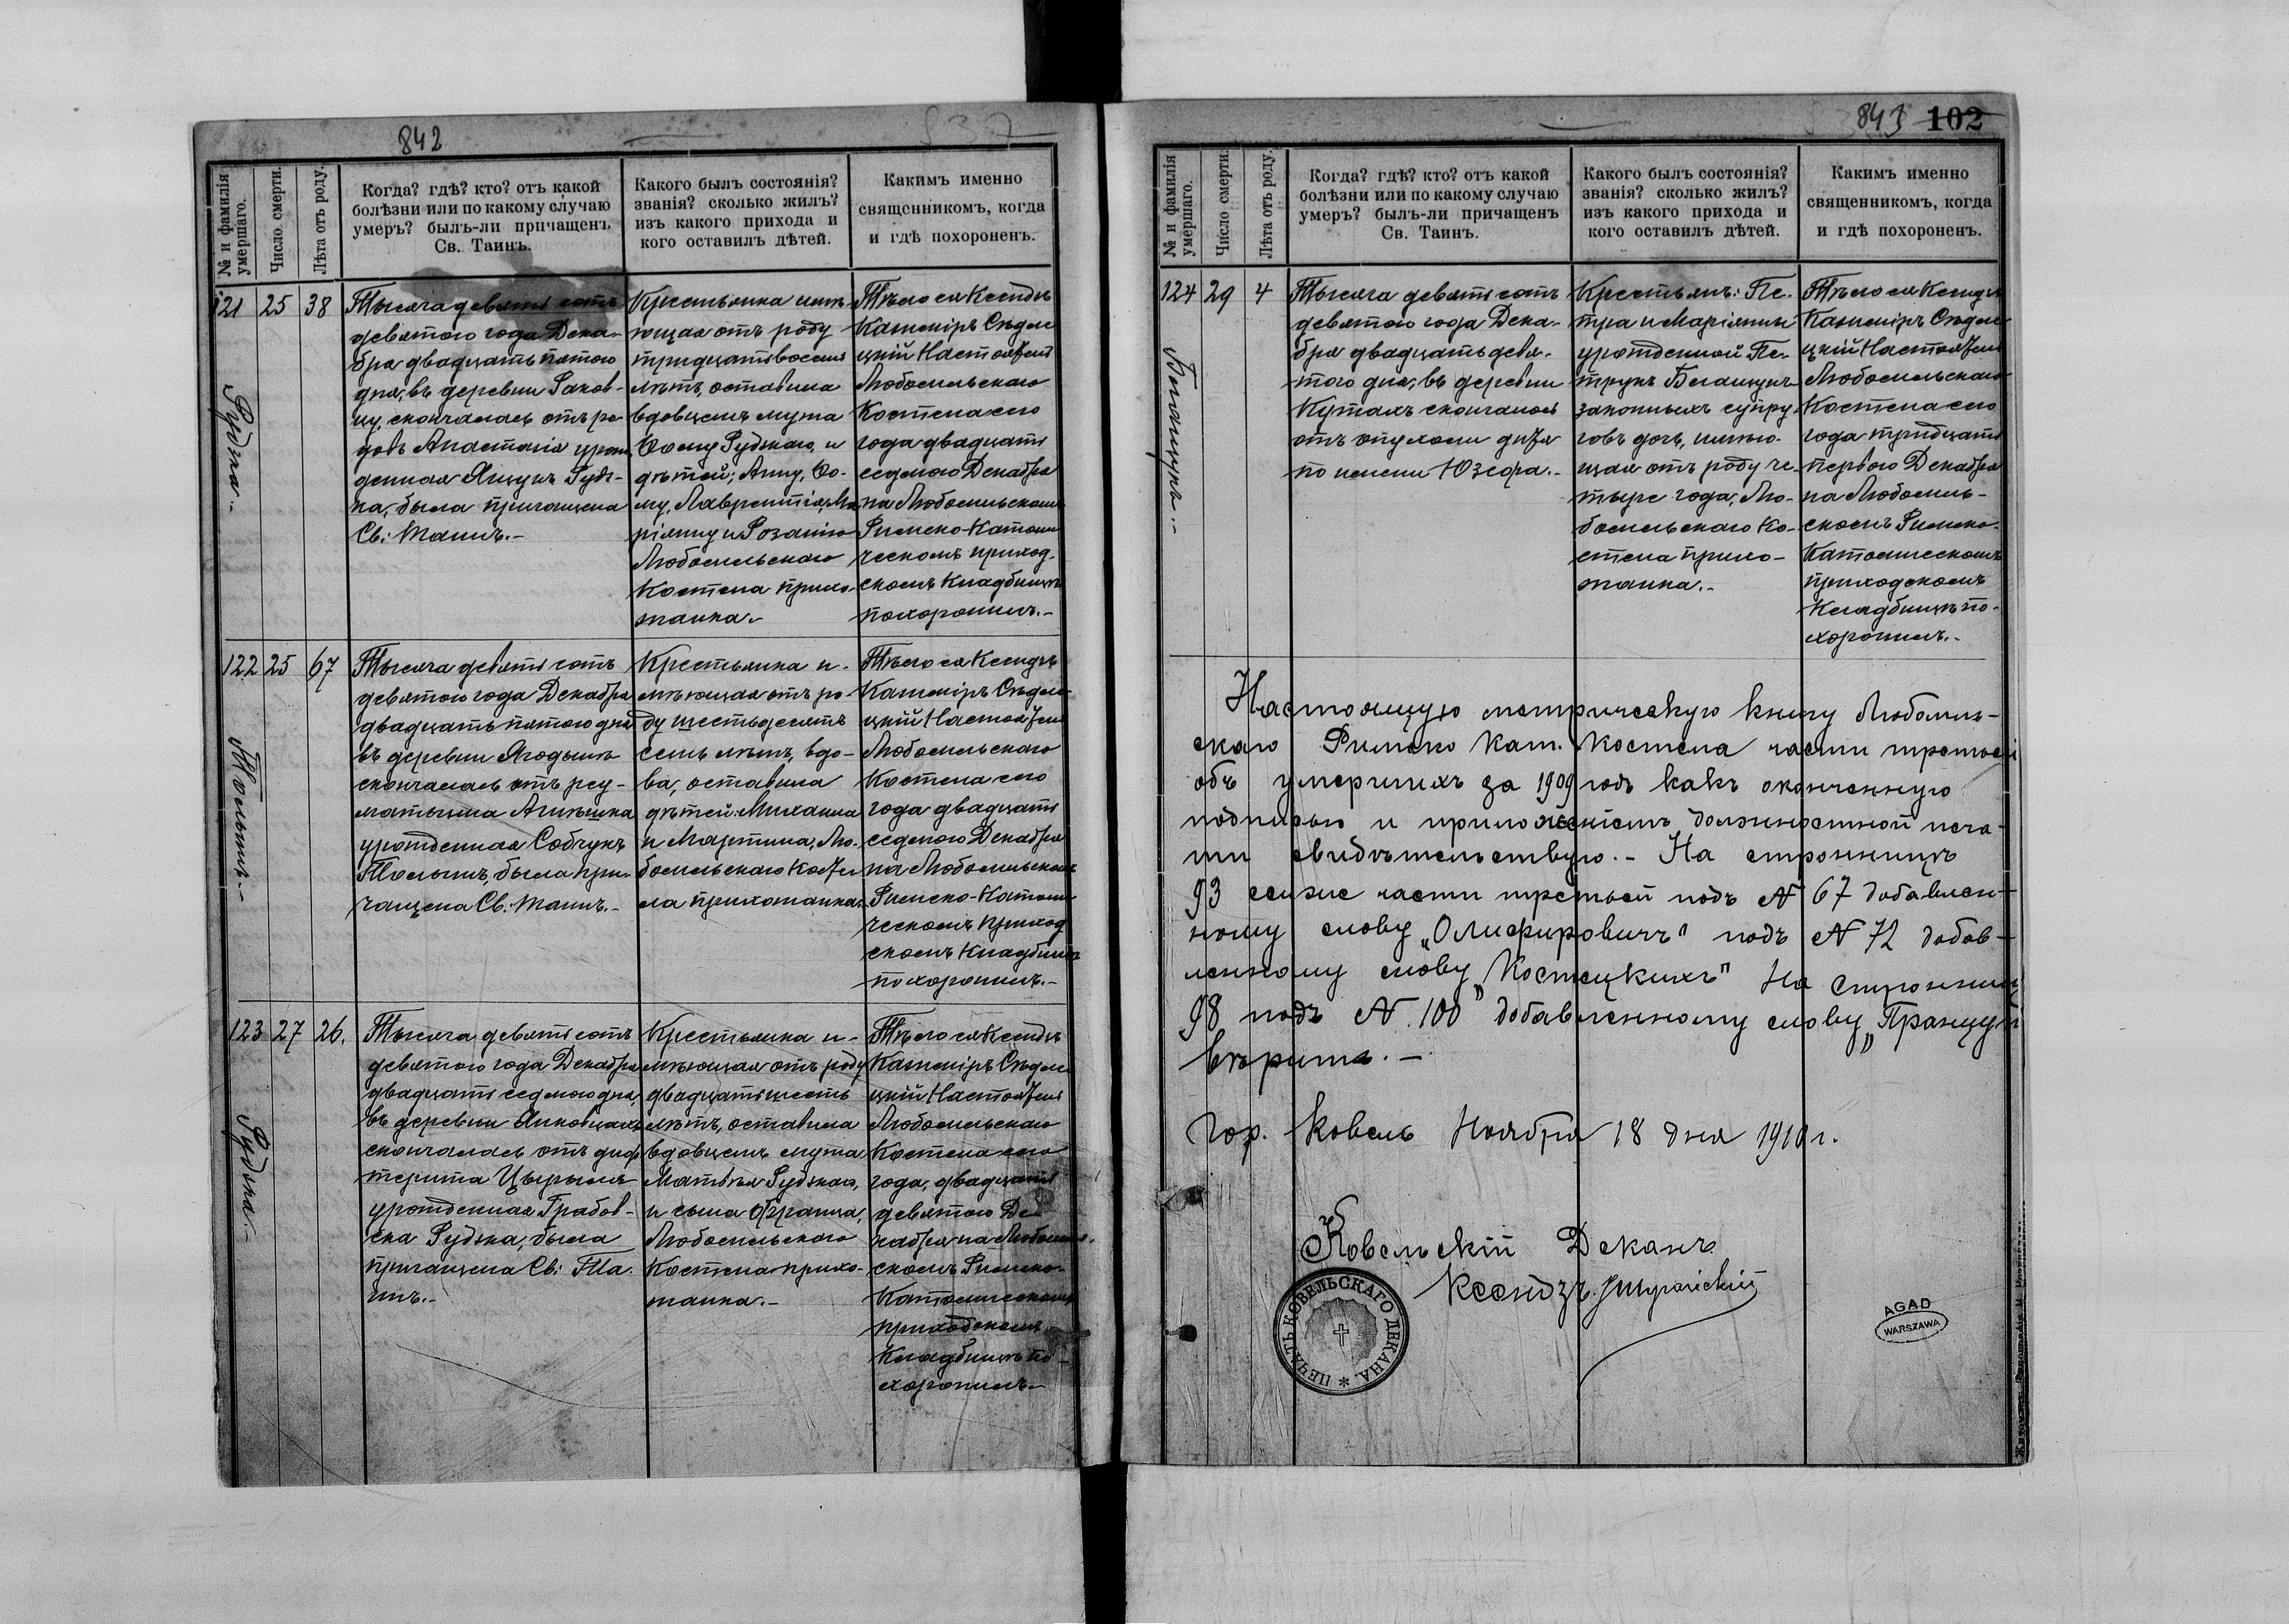 842
№ и фамилія
умершаго.
Число смерти.
Лѣта отъ роду.
Когда? гдѣ? кто? отъ какой
болѣзни или по какому случаю
умеръ? былъ-ли причащенъ
Св. Таинъ.
Какого былъ состоянія?
званія? сколько жилъ?
изъ какого прихода и
кого оставилъ дѣтей.
Какимъ именно
священникомъ, когда
и гдѣ похороненъ.
121
Рудзка.-
25
38
Тысяча девятьсотъ
девятого года Дека-
бря двадцать пятого
дня, въ деревни Раков-
цу, скончалась отъ ро-
довъ Анастасія урож
денная Ящукъ Рудз-
ка, была причащена
Св: Таинъ.-
Крестьянка имѣ-
ющая отъ роду
тридцать восемь
лѣтъ, оставила
вдовцемъ мужа
Ѳому Рудзкаго, и
дѣтей; Анну, Ѳо-
му, Лаврентія, Ма
ріянну и Розалію
Любомльскаго
Костела прихо-
жанка.-
Тѣло ея Ксендзъ
Казиміръ Сѣдле
цкій Настоятель
Любомльскаго
Костела сего
года двадцать
седмого Декабря
на Любомльскомъ
Римско-Католи
ческомъ приход-
скомъ Кладбищѣ
похоронилъ.-
122
Тользинъ.-
25
67
Тысяча девятьсотъ
девятого года Декабря
двадцать пятого дня
въ деревни Ягодынѣ
скончалась отъ рев-
матизма Агнѣшка
урожденная Собчукъ
была при-
чащена Св. Таинъ.-
Крестьянка и-
мѣющая отъ ро-
ду шестьдесятъ
семь лѣтъ, вдо-
ва, оставила
дѣтей: Михаила
и Мартина, Лю-
бомльскаго Косте
ла прихожанка.
Тѣло ея Ксендзъ
Казиміръ Сѣдле-
цкій Настоятель
Любомльскаго
Костела сего
года двадцать
седмого Декабря
на Любомльскомъ
Римско-Католи
ческомъ приход
скомъ Кладбищѣ
похоронилъ.-
123
Рудзка.-
27
26.
Тысяча девятьсотъ
девятого года Декабря
двадцать седмого дня,
въ деревни Янковцахъ
скончалась отъ диф
терита Цырыля
урожденная Грабов-
ска Рудзка, была
причащена Св: Та-
инъ.-
Крестьянка и-
мѣющая отъ роду
двадцать шесть
лѣтъ, оставила
вдовцемъ мужа
Матвѣя Рудзкаго,
и сына Франца,
Любомльскаго
Костела прихо-
жанка.-
Тѣло ея Ксендзъ
Казиміръ Сѣдле
цкій Настоятель
Любомльскаго
Костела сего
года, двадцать
девятого Де-
кабря на Любомль-
скомъ Римско-
Католическомъ
приходскомъ
Кладбищѣ по-
хоронилъ.-
843 102
№ и фамилія
умершаго.
Число смерти.
Лѣта отъ роду.
Когда? гдѣ? кто? отъ какой
болѣзни или по какому случаю
умеръ? былъ-ли причащенъ
Св. Таинъ.
Какого былъ состоянія?
званія? сколько жилъ?
изъ какого прихода и
кого оставилъ дѣтей.
Какимъ именно
священникомъ, когда
и гдѣ похороненъ.
124
29
4
Тысяча девятьсотъ
девятого года Дека-
бря двадцать девя-
того дня, въ деревни
Кутахъ скончалась
отъ опухоли дитя
по имени Юзефа.-
Крестьянъ: Пе-
тра и Маріянны
урожденной Пе-
трукъ
законныхъ супру-
говъ дочь, имѣю-
щая отъ роду че-
тыре года, Лю-
бомльскаго Ко-
стела прихо-
жанка.-
Тѣло ея Ксендзъ
Казиміръ Сѣдле
цкій Настоятель
Любомльскаго
Костела сего
года тридцать
первого Декабря
на Любомль-
скомъ Римско-
Католическомъ
приходскомъ
Кладбищѣ по-
хоронилъ.-
Настоящую метрическую книгу Любомль-
скаго Римско Кат. Костела части третьей
объ умершихъ за 1909 годъ какъ оконченную
подписью и приложеніемъ должностной печа-
ти свидѣтельствую.- На страницѣ
93 сей же части третьей подъ N 67 добавлен-
ному слову „Олифировичъ" подъ N 72 добав-
ленному слову „Костецкихъ" На страниц
98 подъ N. 100 добавленному слову „Францу"
вѣрить.-
Гор. Ковель Ноября 18 дня 1910 г.
Ковельскій Деканъ
Ксендзъ
ПЕЧАТЬ КОВЕЛЬСКАГО ДЕКАНА.
AGAD
WARSZAWA